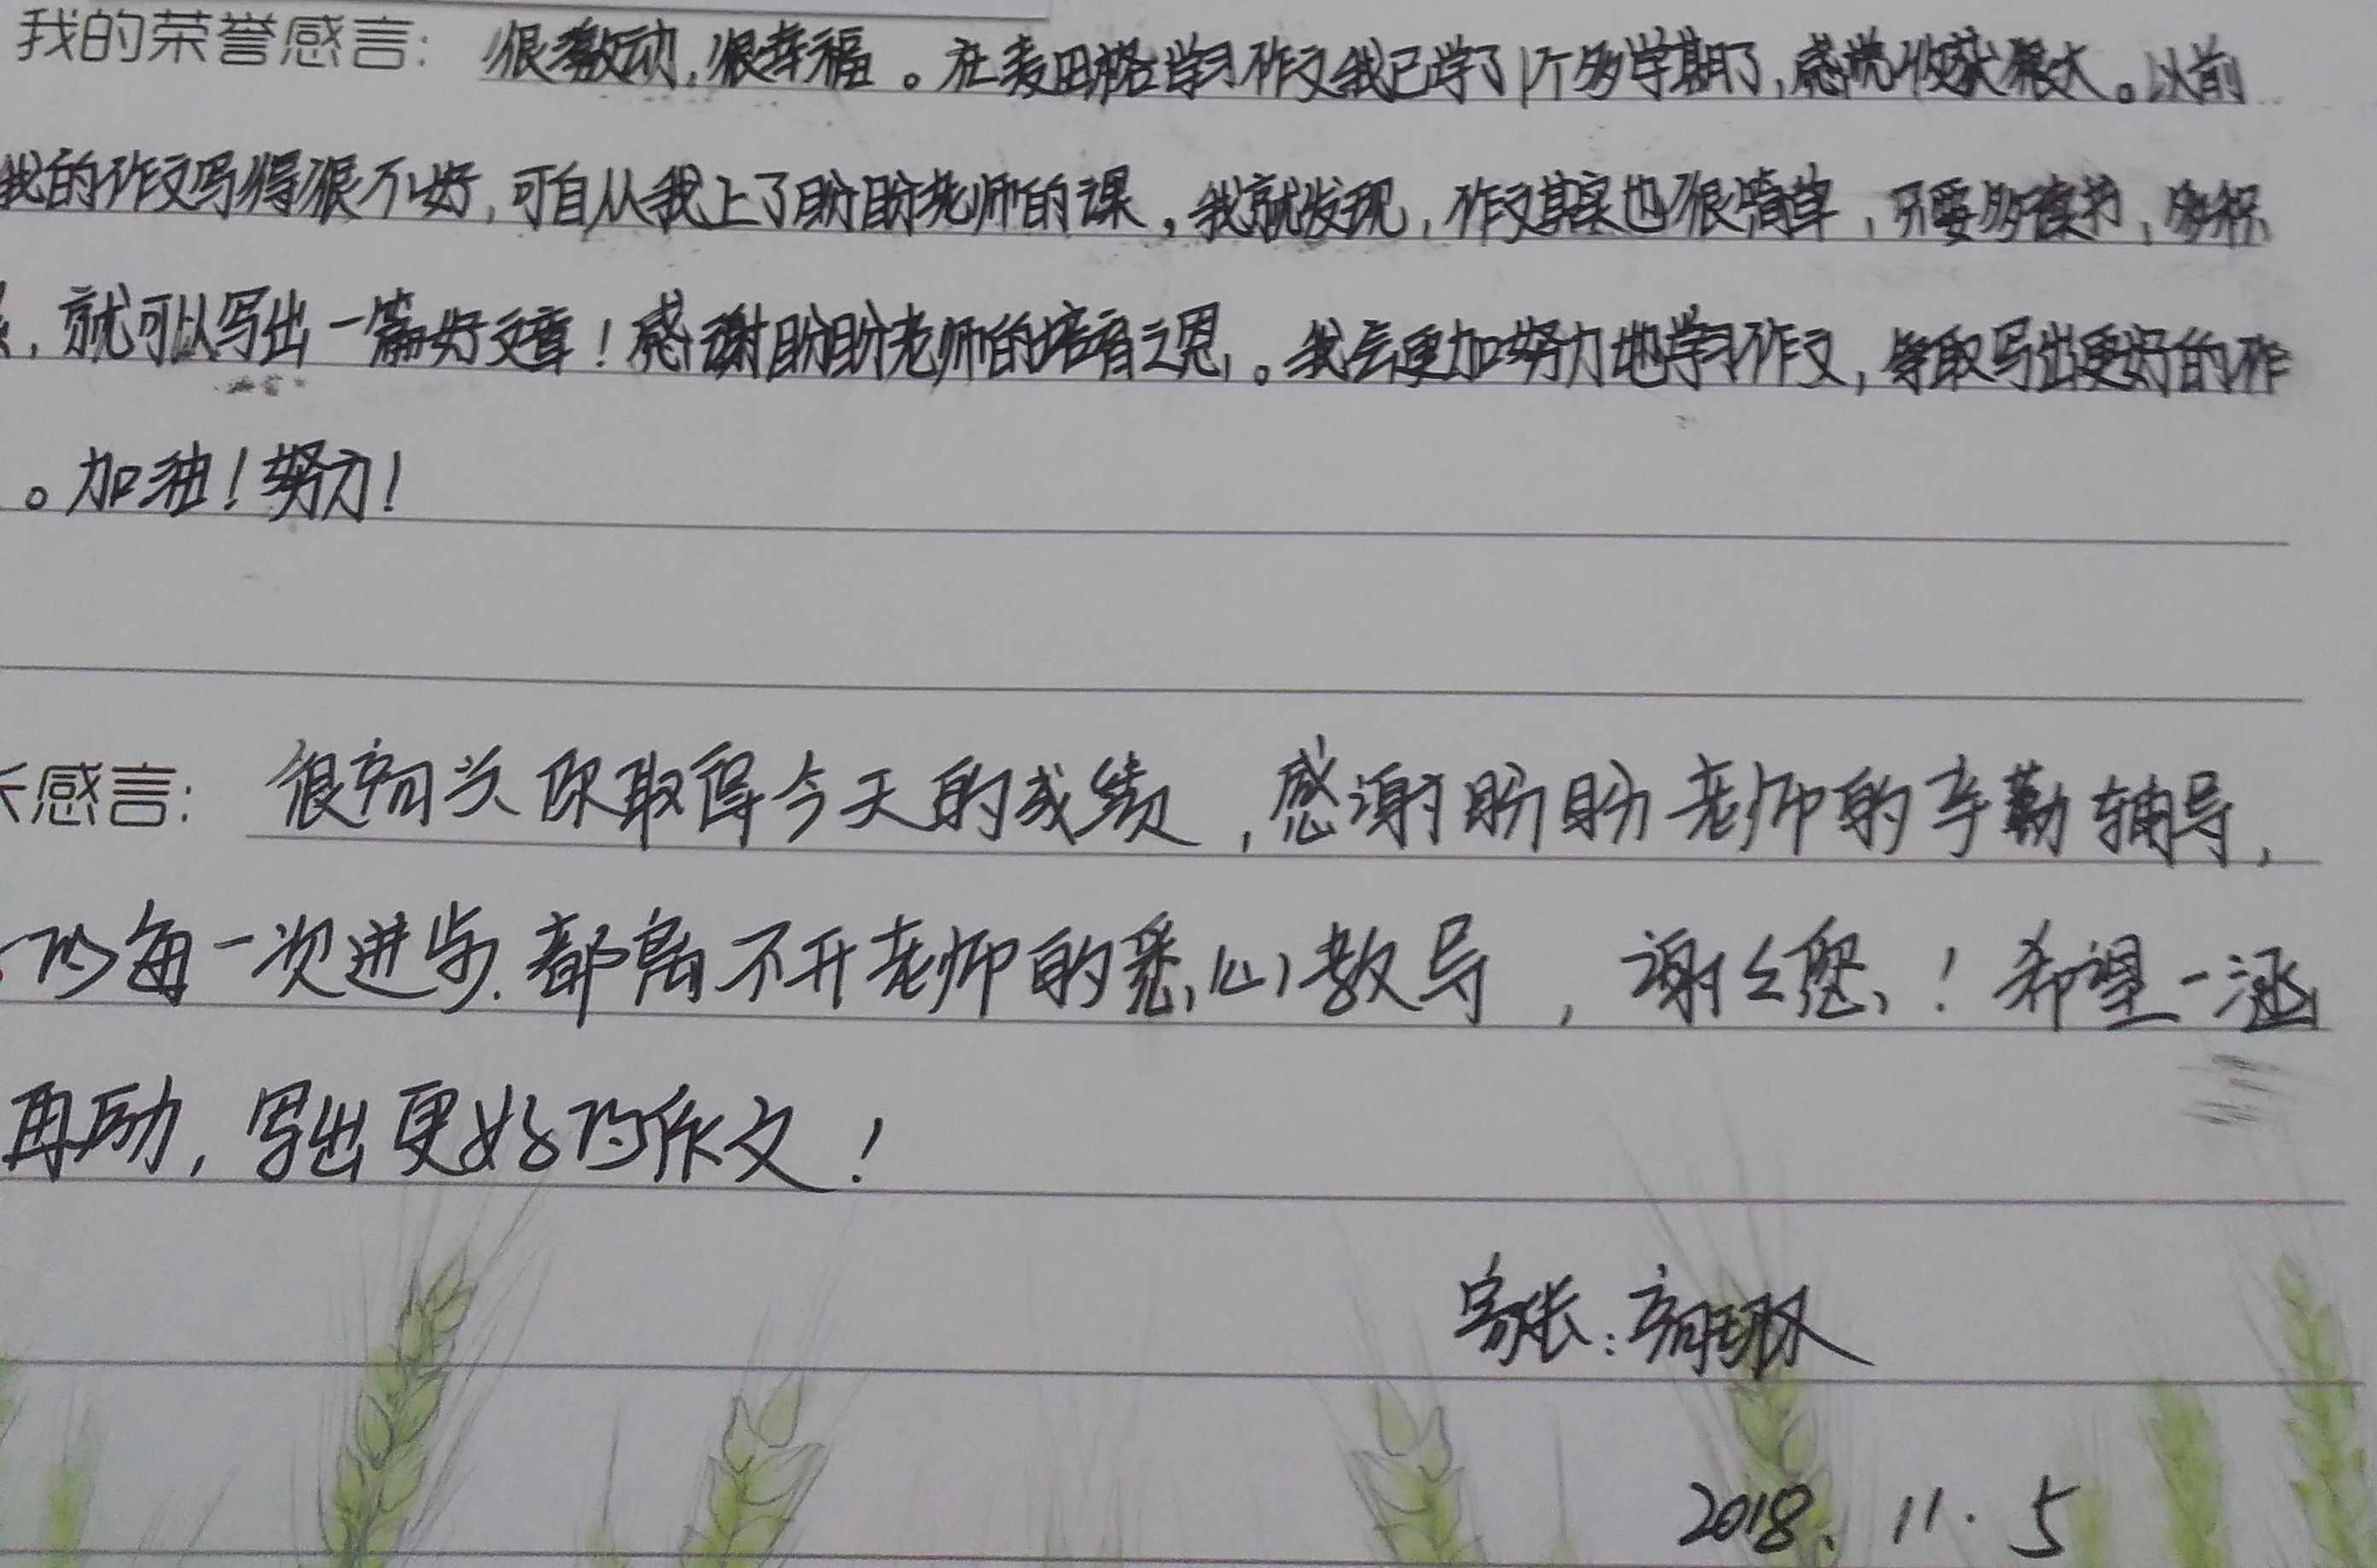 我的荣誉感言: 很激动,很幸福。在麦田格学习作文我已学了1个多学期了,感觉收获很大。以前
我的作文写得很不好,可自从我上了盼盼老师的课,我就发现,作文其实也很简单,只要多读书,多积
,就可以写出一篇好文章!感谢盼盼老师的培育之恩。我会更加努力地学习作文,争取写出更好的作
。加油!努力!
长感言: 很高兴你取得今天的成绩,感谢盼盼老师的辛勤辅导,
的每一次进步.都离不开老师的悉心教导,谢谢您!希望一涵
再励,写出更好的作文!
家长:高
2018.11.5